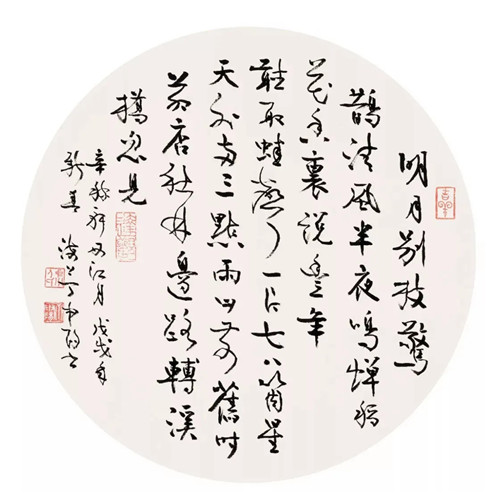 明月别枝驚
鵲清風半夜鳴蝉稻
花香裏説豐年
聽取蛙聲一片七八箇星
天外两三點雨山前舊时
茅店社林邊路轉溪
橋忽見
辛稼軒西江月戊戌年
新春海上丁申